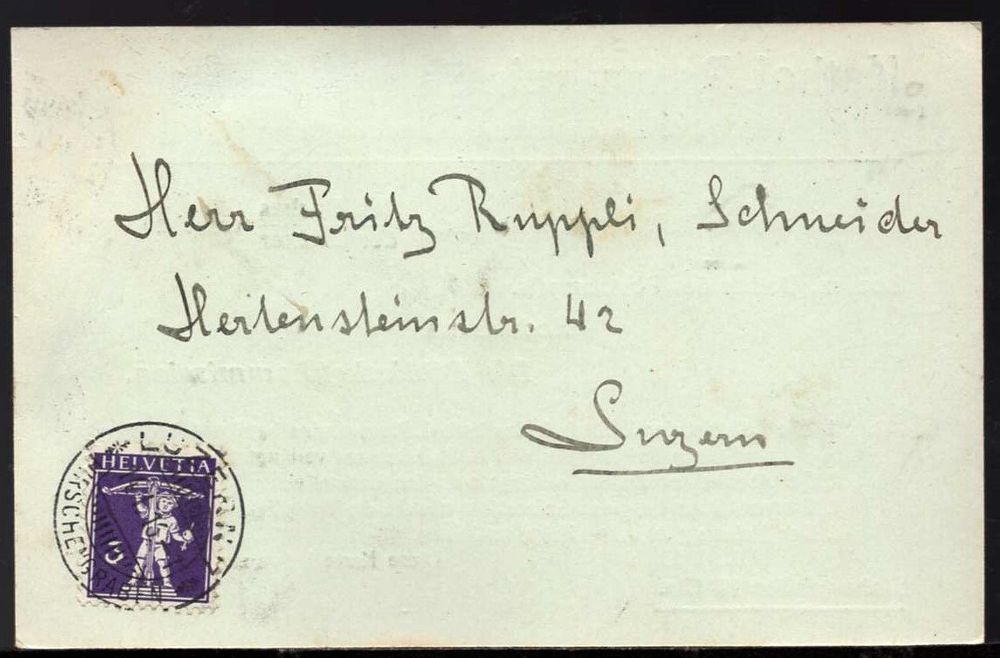 Herr Fritz Ruppli, Schneider
Hertensteinstr. 42
Luzern
LUZERN
HELVETIA
5
HIRSCHENGRABEN